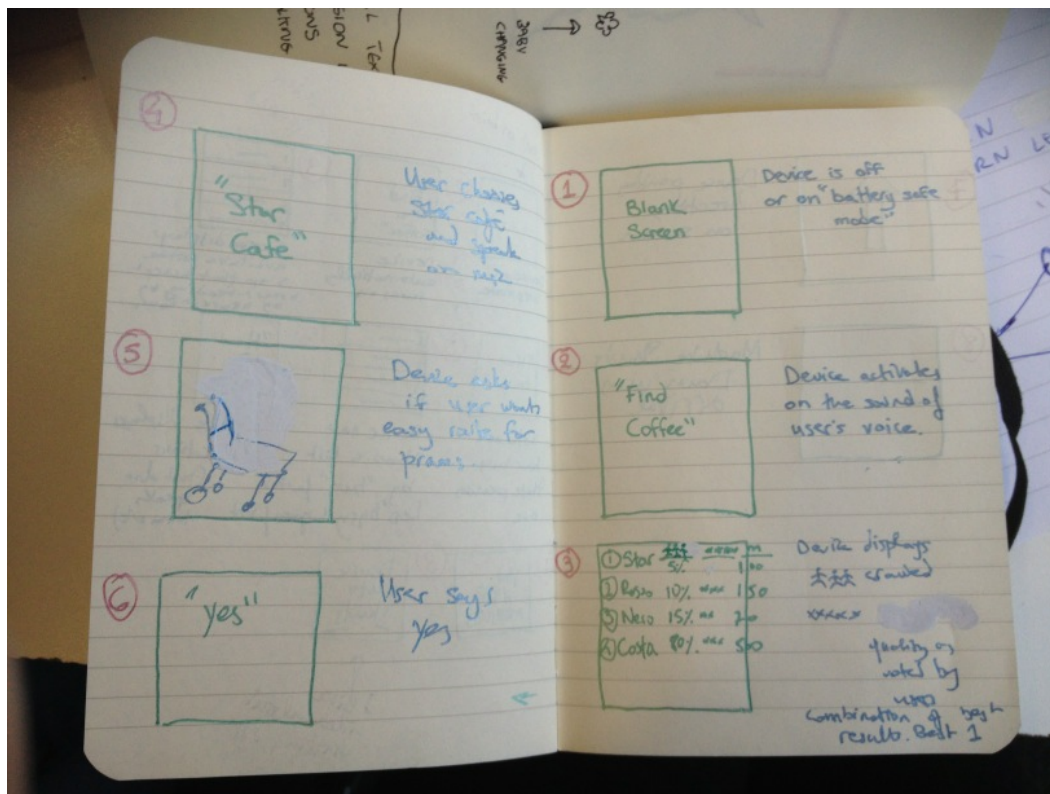 298V
CHANGING
4
"Star
Cafe"
User chooses
Star cafe
and speak
5
Device asks
if user wants
easy route for
prams
6
"yes"
User says
yes
1
Blank
Screen
Device is off
or on "battery safe
mode"
2
"Find
Coffee"
Device activates
on the sound of
user's voice.
3
1 Star 5% ***** m 100
2 Rosso 10% *** 150
3 Nero 15% ** 20
4 Costa 80% *** 500
Device displays
crowded
*****
quality as
voted by
users
combination of best
result. Best 1